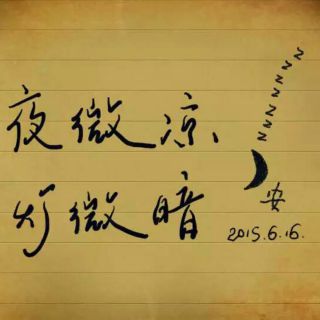 夜微凉、
灯微暗
zzzzzzzz
安
2015.6.16.